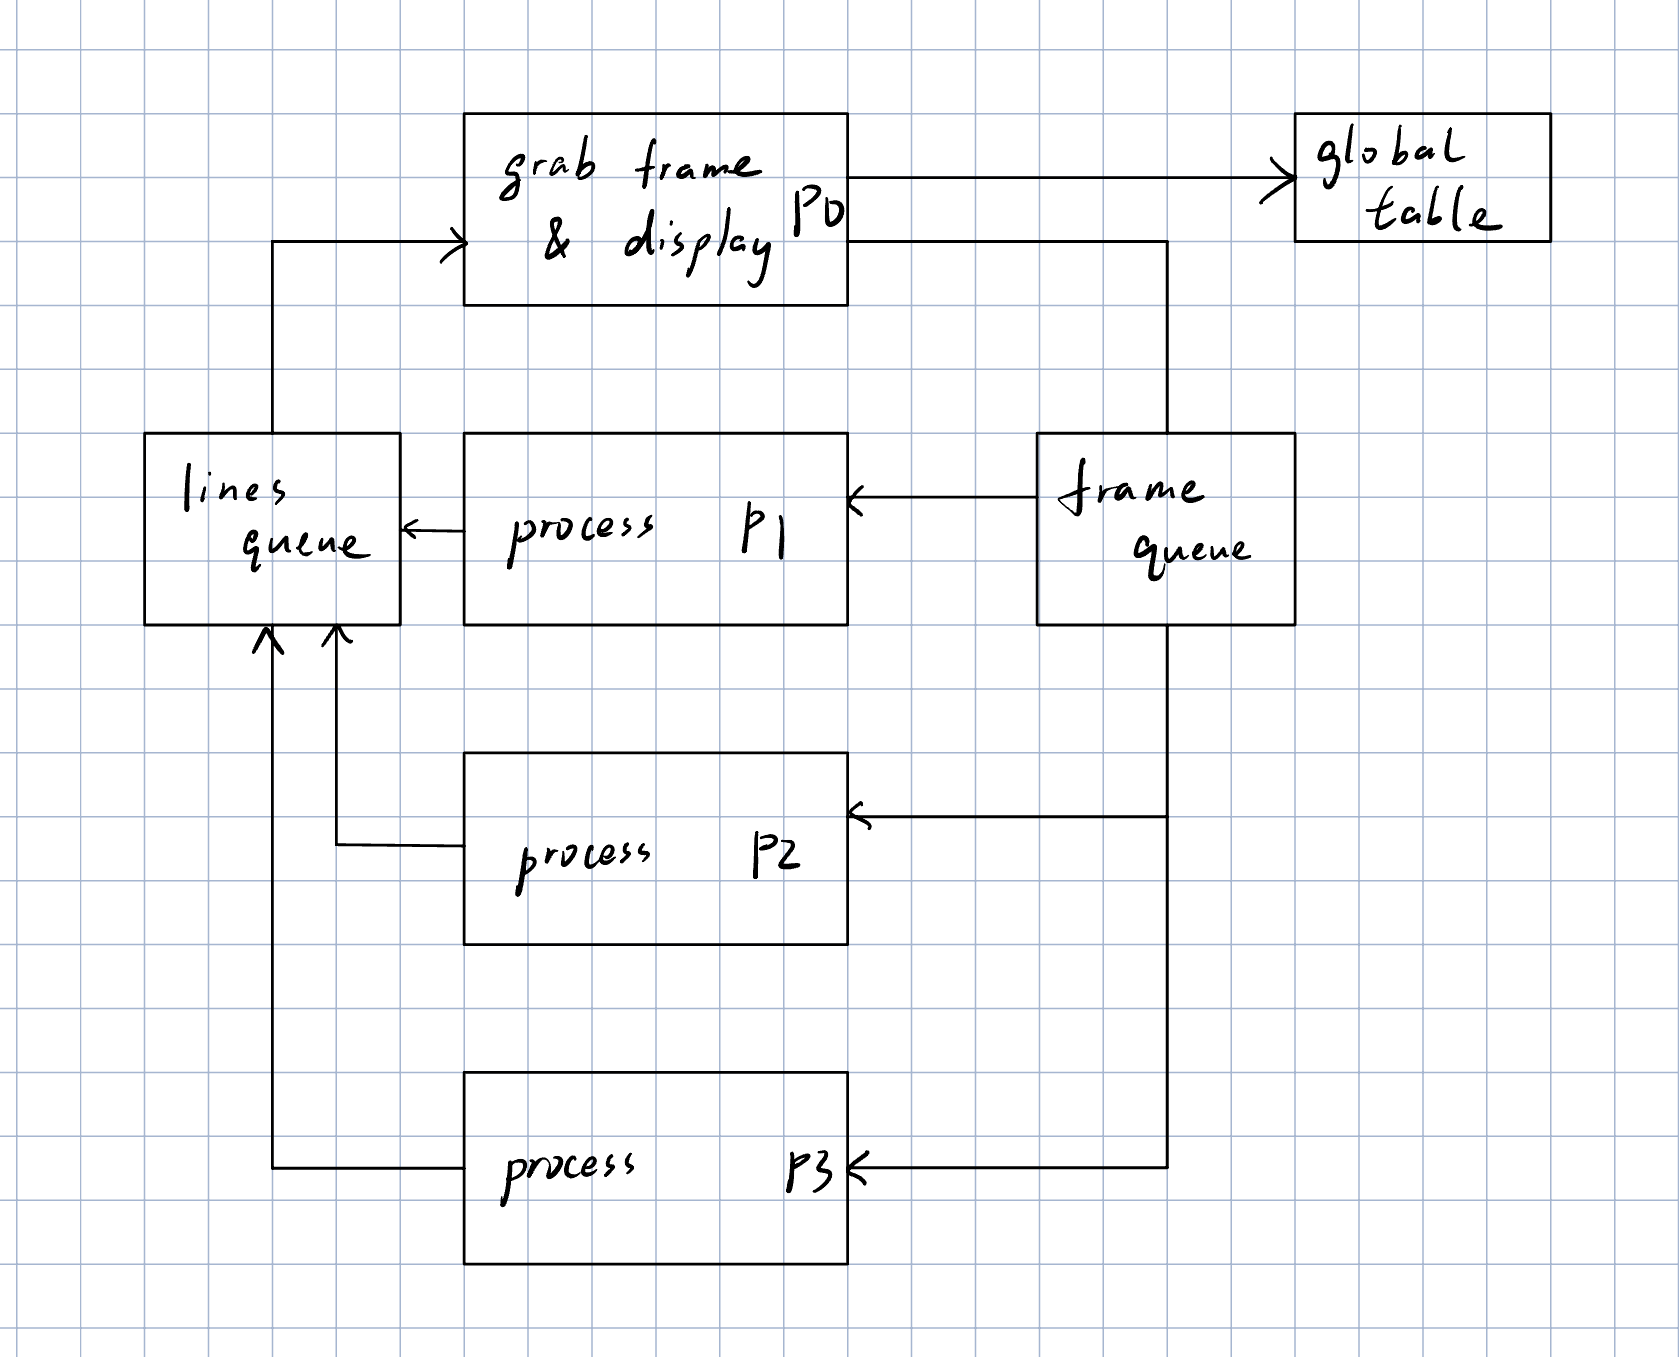 grab frame
& display P0
global
table
lines
queue
process P1
frame
queue
process P2
process P3